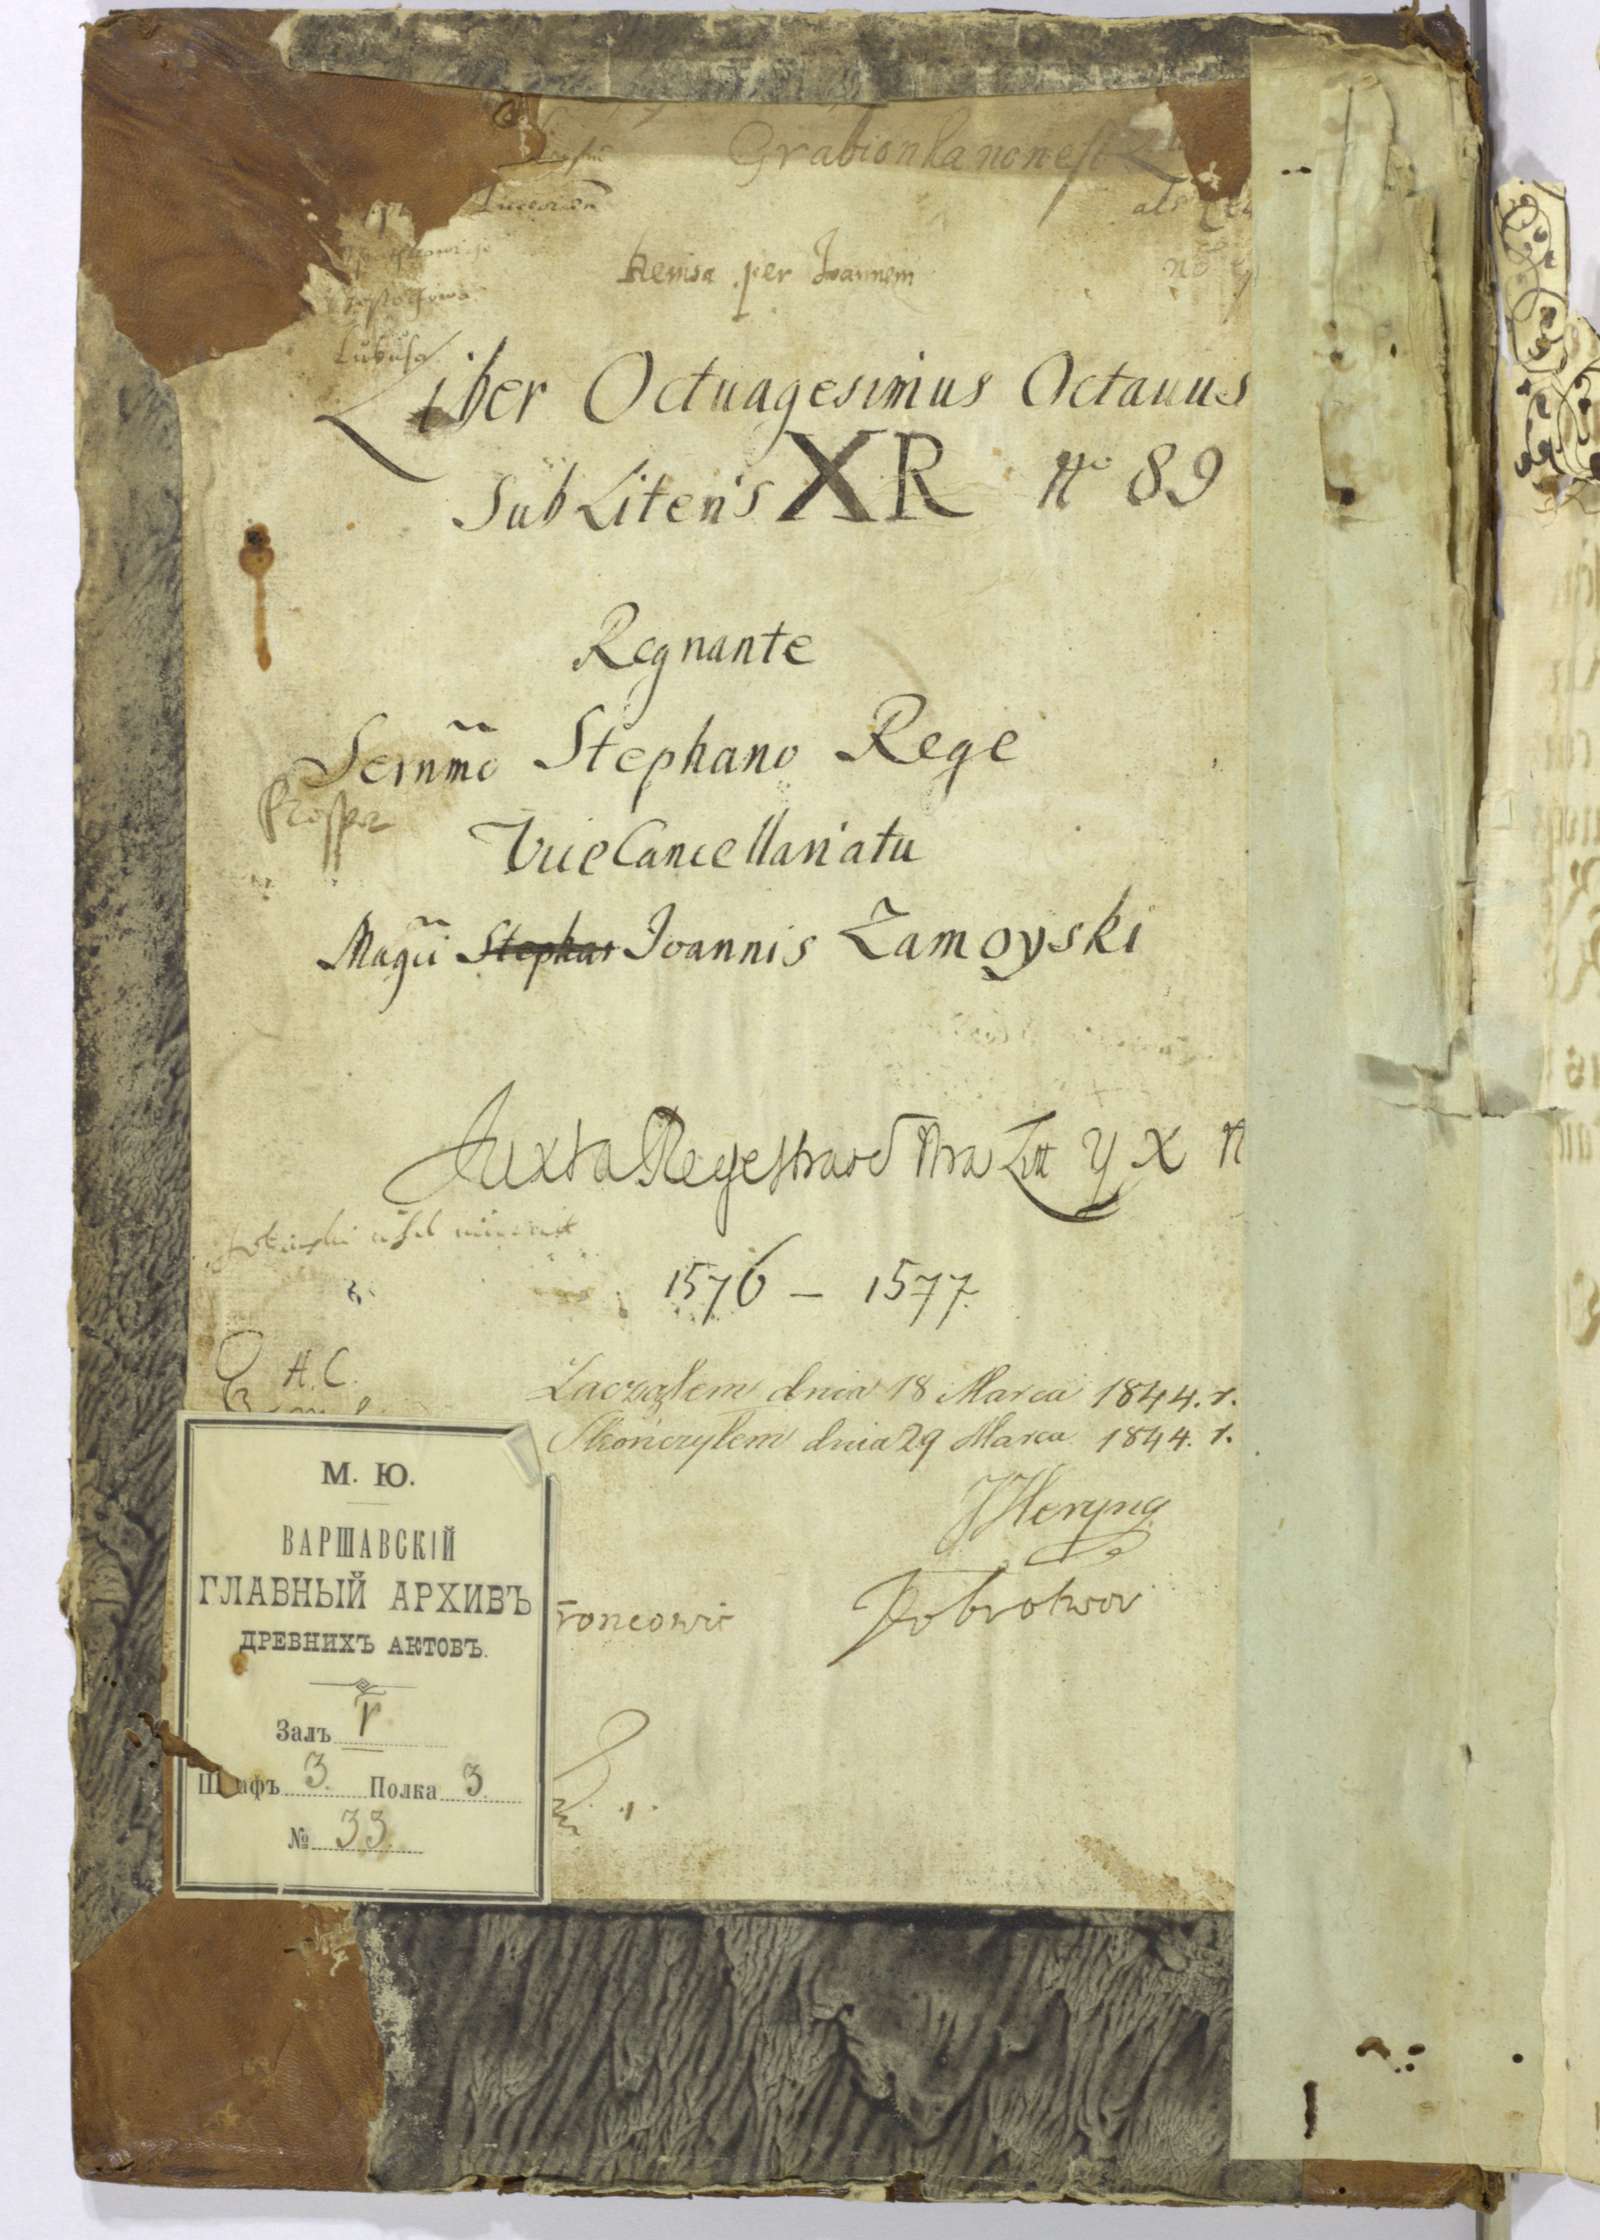 Grabionka non est
als
Remisa per Joannem
Lubusa
Liber Octuagesimus Octauus
Sub Literis XR No 89
Regnante
Sernmo Stephano Rege
Prosper
ViceCancellariatu
Magci Stephan Joannis Zamoyski
Juxta Regestra Litt Y X N
nihil
1576 – 1577
H. C.
Zacząłem dnia 18 Marca 1844. r.
Skończyłem dnia 29 Marca 1844. r.
JHeryng
Dobrotwor
М. Ю.
ВАРШАВСКІЙ
ГЛАВНЫЙ АРХИВЪ
ДРЕВНИХЪ АКТОВЪ.
Залъ V
Шкафъ 3. Полка 3
№ 33.